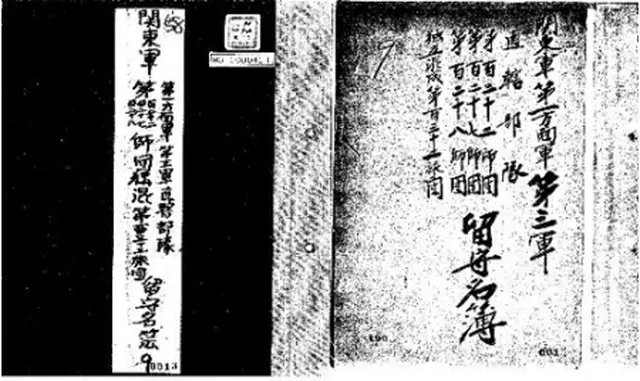 關東軍
第一方面軍 第三軍直轄部隊
師団独混第百三十二旅団
留守名簿
9
0013
関東軍第一方面軍 第三軍
直轄部隊
第百二十二師団
第百二十七師団
第百二十八師団
独立混成第百三十二旅団
留守名簿
9